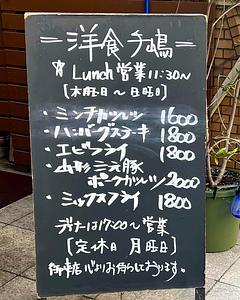 洋食 ケ嶋
Lunch 営業 11:30〜
[木曜日〜日曜日]
・ミンチカツレツ 1600
・ハンバーグステーキ 1800
・エビフライ 1800
・山形三元豚
ポークカツレツ 2000
・ミックスフライ 1800
ディナーは17:00〜営業
[定休日 月曜日]
御来店心よりお待ちしております。